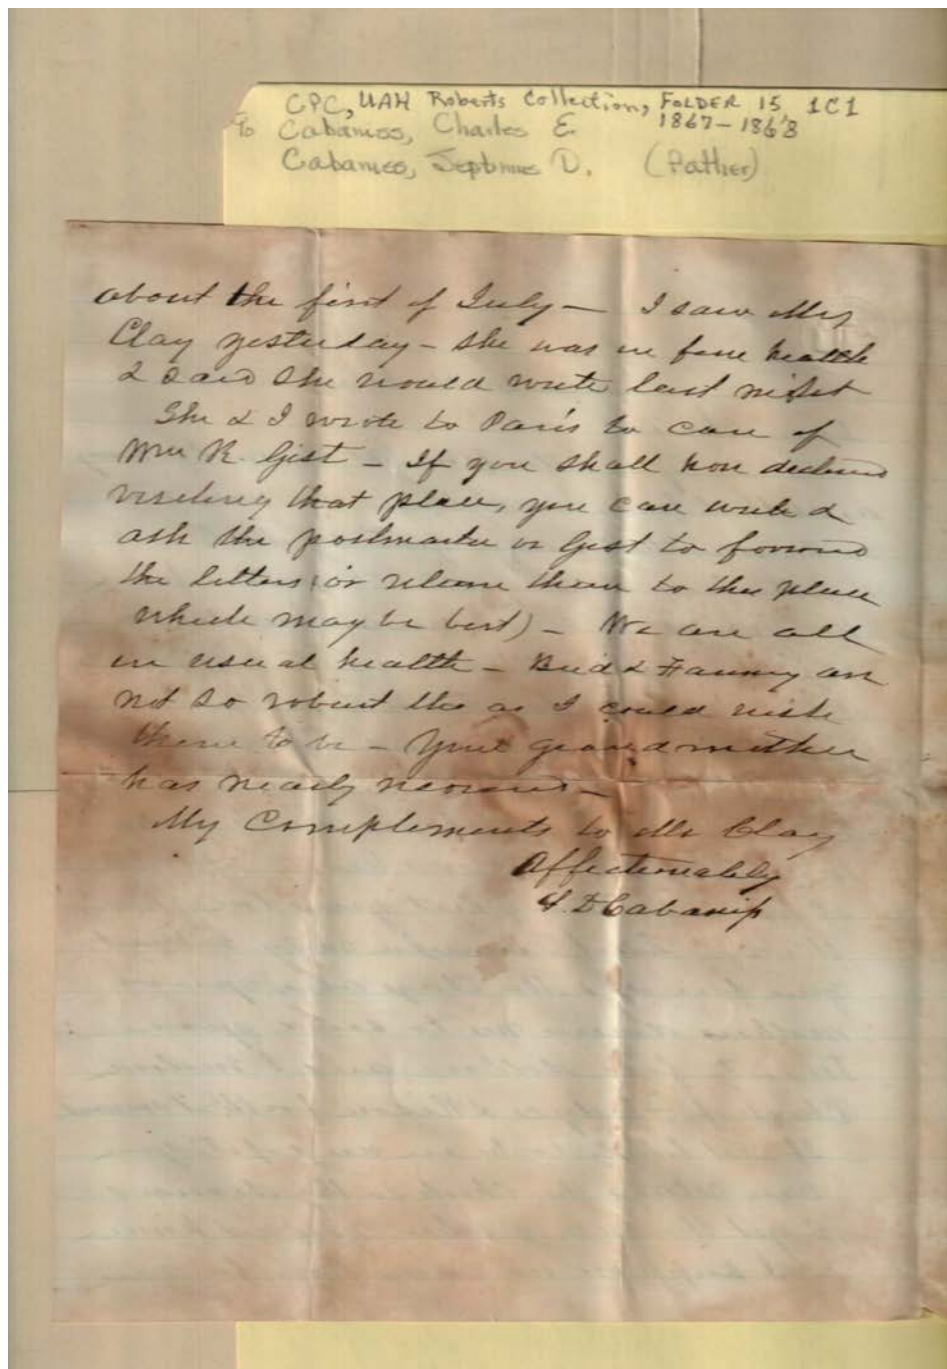 CPC, UAH Roberts Collection, FOLDER 15, 1C1
1867-1868
To Cabaniss, Charles E.
Cabaniss, Septimus D. (Father)
about the first of July — I saw Mrs
Clay yesterday — she was in fine health
& said she would write last night
She & I wrote to Paris to care of
Wm R. Gist — If you shall have declined
visiting that place, you can write &
ask the postmaster or Gist to forward
the letters (or return them to this place
which may be best) — We are all
in usual health — Bud & Fanny are
not so robust tho as I could wish
them to be — Your grandmother
has nearly recovered —
My Complements to Mr Clay
Affectionately
S. D. Cabaniss